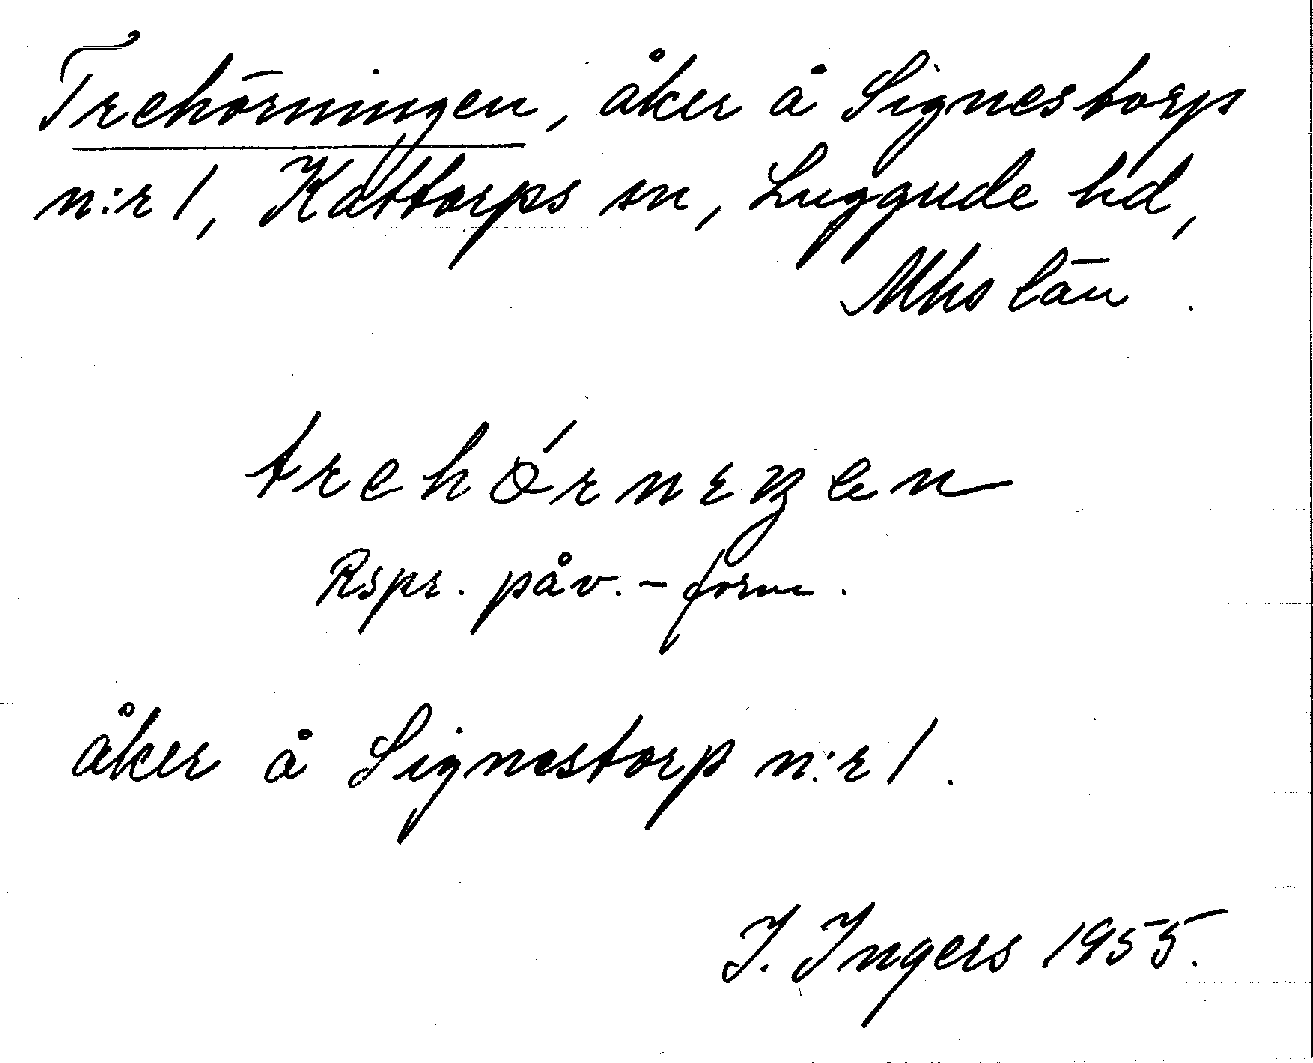 Trehörningen, åker å Signestorp
n:r 1, Kattorps sn, Luggude hd,
Mhs län.
trehǿrnıŋen
Rspr. påv. - form.
åker å Signestorp n:r 1.
I. Ingers 1955.